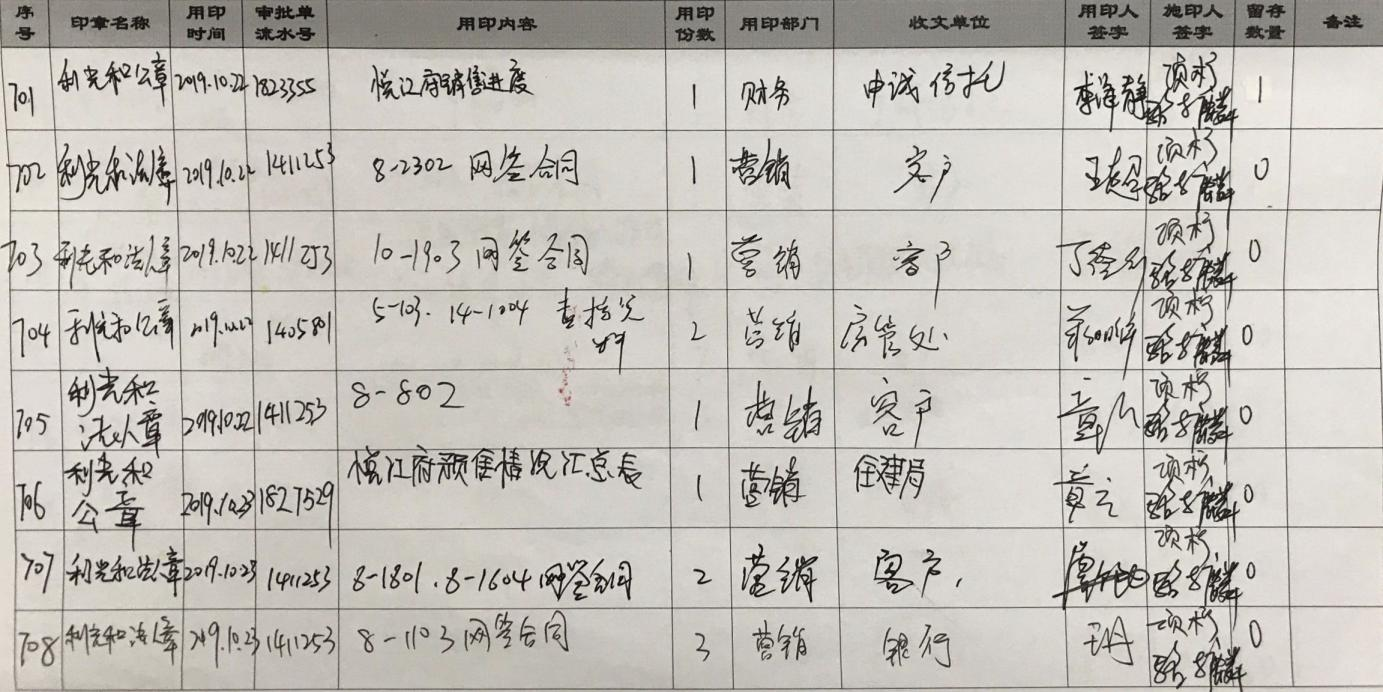 序号 印章名称 用印时间 审批单流水号 用印内容 用印份数 用印部门 收文单位 用印人签字 施印人签字 留存数量 备注
701 利光和公章 2019.10.22 1823355 悦江府销售进度 1 财务 申诚信托 李泽静 项杉 1
702 利光和法人章 2019.10.22 1411253 8-2302 网签合同 1 营销 客户 王超 项杉 0
703 利光和法人章 2019.10.22 1411253 10-1903 网签合同 1 营销 客户 项杉 0
704 利光和公章 2019.10.22 1405801 5-103. 14-1004 查档 2 营销 房管处 项杉 0
705 利光和法人章 2019.10.22 1411253 8-802 1 营销 客户 项杉 0
706 利光和公章 2019.10.23 1827529 悦江府预售情况汇总表 1 营销 住建局 项杉 0
707 利光和法人章 2019.10.23 1411253 8-1801.8-1604 网签合同 2 营销 客户 项杉 0
708 利光和法人章 2019.10.23 1411253 8-1103 网签合同 3 营销 银行 项杉 0